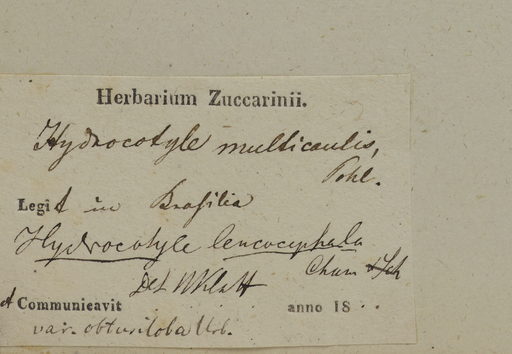 Herbarium Zuccarinii.
Hydrocotyle multicaulis,
Pohl.
Legit in Brasilia
Hydrocotyle leucocephala
Cham & Sch
Det W Klatt
et Communicavit anno 18 . .
var. obtusiloba Urb.